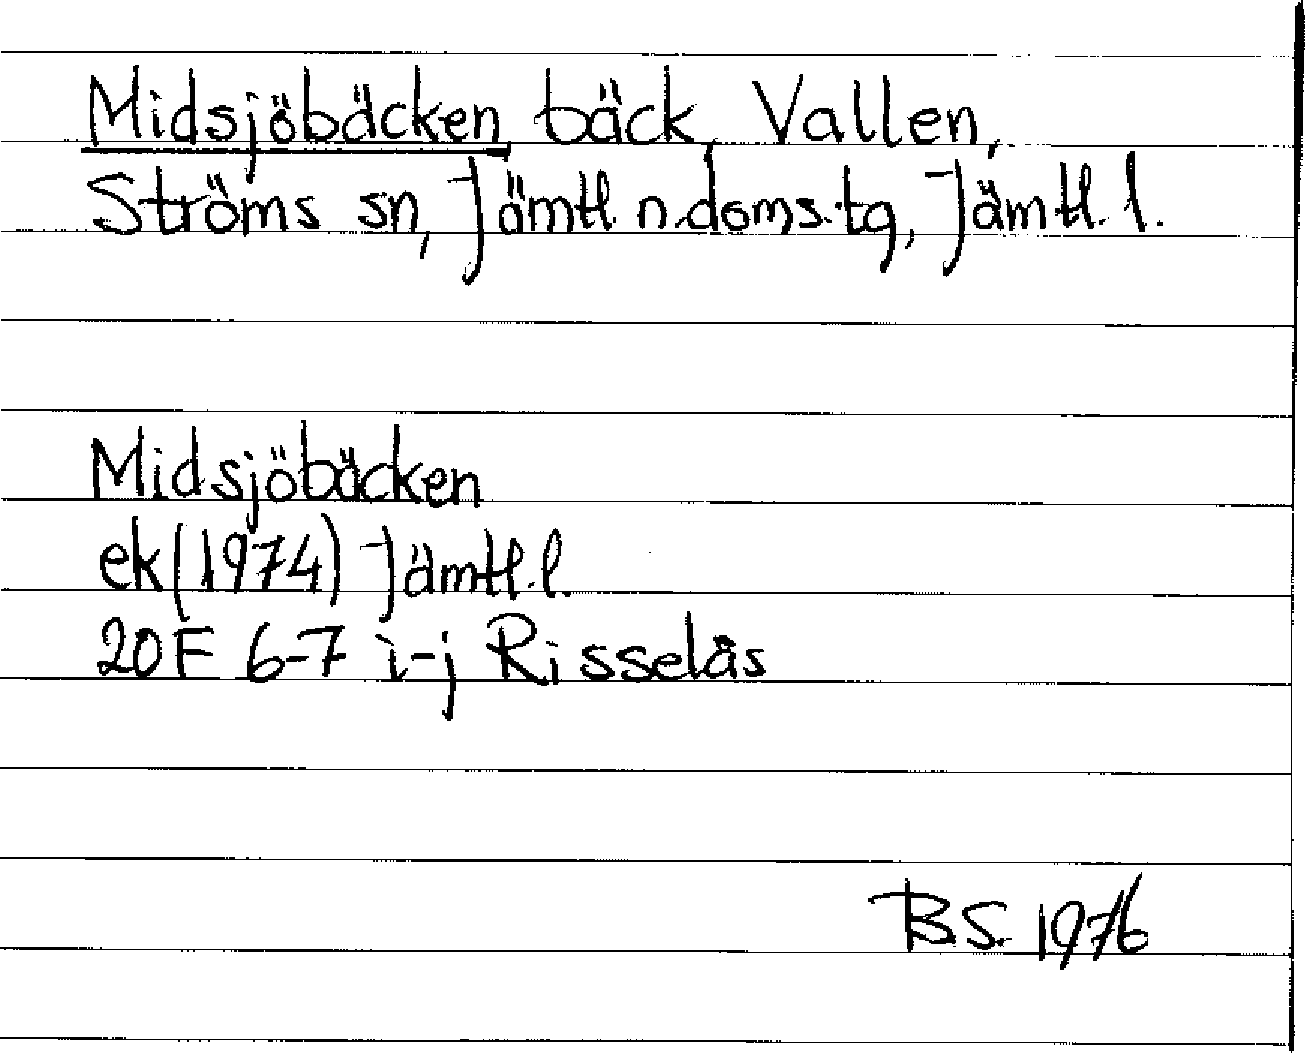 Midsjöbäcken, bäck, Vallen,
Ströms sn, Jämtl. n.doms.tg, Jämtl. l.
Midsjöbäcken
ek (1974) Jämtl. l.
20 F 6-7 i-j Risselås
B.S. 1976